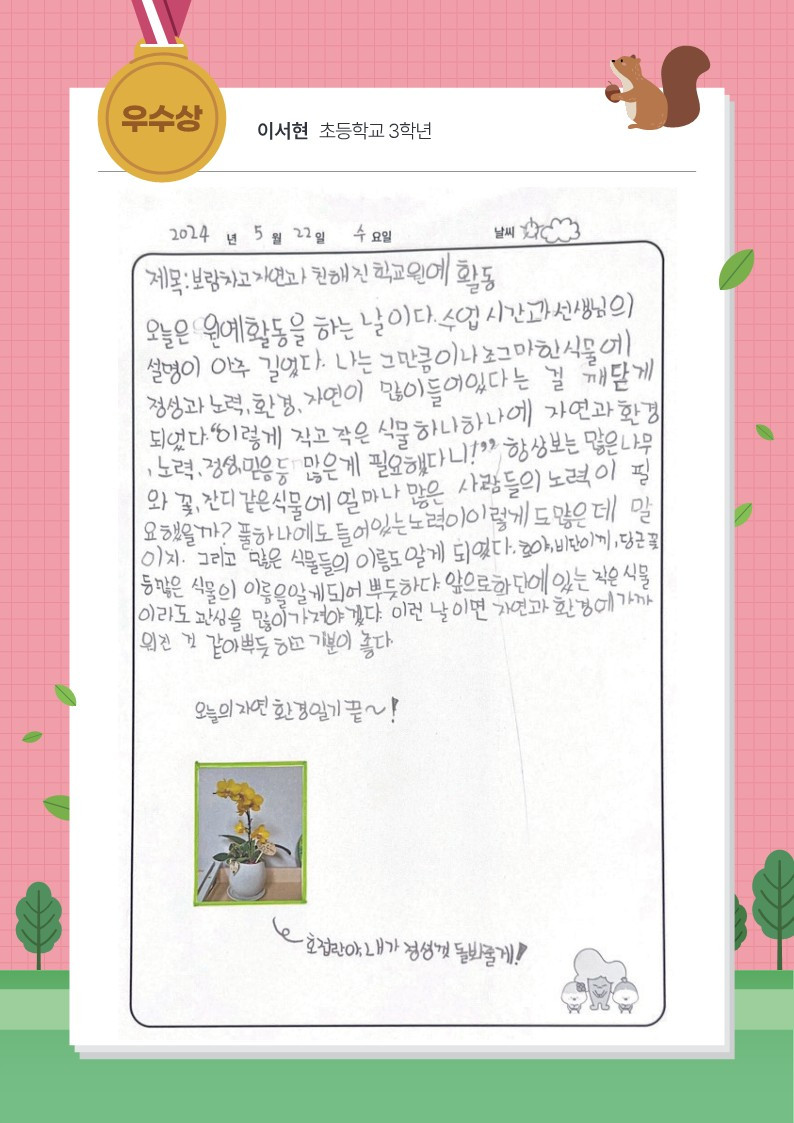 우수상
이서현 초등학교 3학년
2024 년 5 월 22 일 수 요일 날씨
제목:보람차고 자연과 친해진 학교원예 활동
오늘은 원예활동을 하는 날이다. 수업 시간과 선생님의
설명이 아주 길었다. 나는 그만큼이나 조그마한 식물에
정성과 노력, 환경, 자연이 많이들어있다는 걸 깨닫게
되었다."이렇게 작고 작은 식물 하나하나에 자연과 환경
, 노력, 정성, 믿음 등 많은게 필요했다니!" 항상보는 많은 나무
와 꽃, 잔디 같은 식물에 얼마나 많은 사람들의 노력이 필
요했을까? 풀하나에도 들어있는 노력이 이렇게 도많은데 말
이지. 그리고 많은 식물들의 이름도 알게 되었다. 호야, 비단이끼, 당근꽃
등많은 식물의 이름을알게되어 뿌듯하다. 앞으로 화단에 있는 작은 식물
이라도 관심을 많이가져야겠다. 이런 날이면 자연과 환경에 가까
워진 것 같아 뿌듯하고 기분이 좋다
오늘의 자연 환경일기 끝~!
호접란아, 내가 정성껏 돌봐줄게!